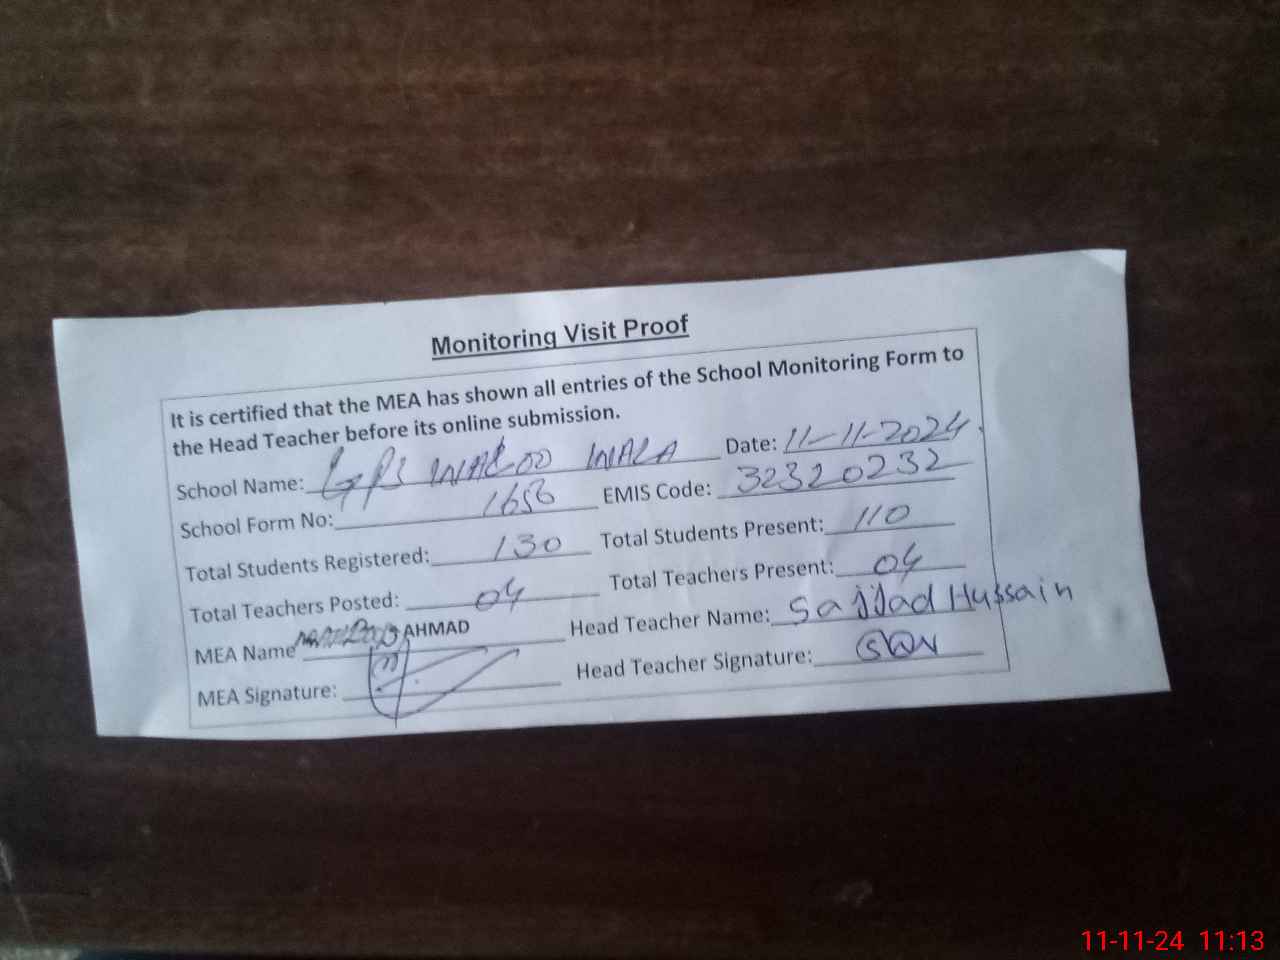 Monitoring Visit Proof
It is certified that the MEA has shown all entries of the School Monitoring Form to
the Head Teacher before its online submission.
School Name: GPS WALA Date: 11-11-2024.
School Form No: 1656 EMIS Code: 32320232
Total Students Registered: 130 Total Students Present: 110
Total Teachers Posted: 04 Total Teachers Present: 04
MEA Name AHMAD Head Teacher Name: Sajjad Hussain
MEA Signature: Head Teacher Signature:
11-11-24 11:13